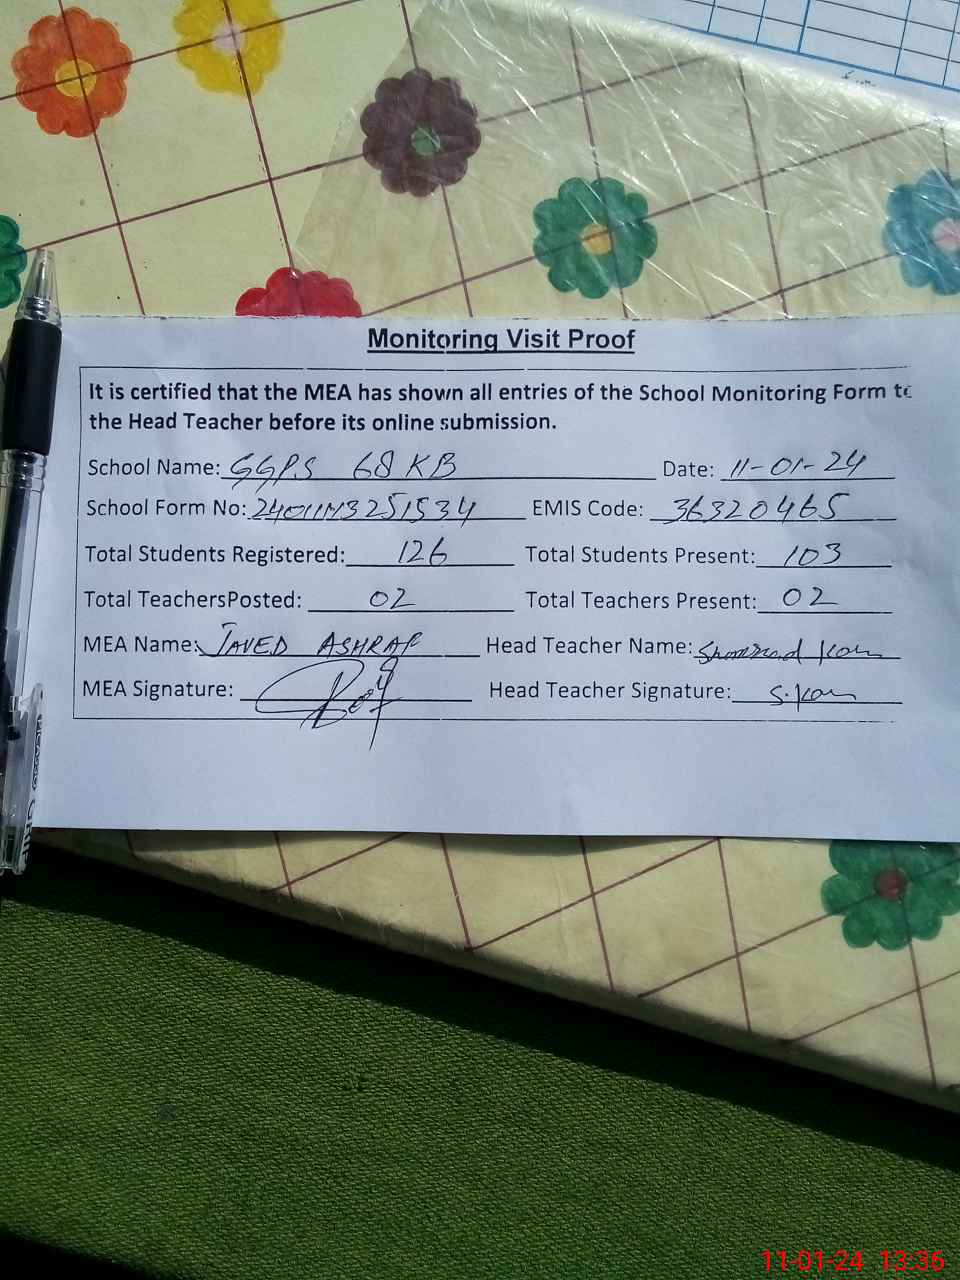 Monitoring Visit Proof
It is certified that the MEA has shown all entries of the School Monitoring Form to
the Head Teacher before its online submission.
School Name: GGPS 68 KB Date: 11-01-24
School Form No: EMIS Code: 36320465
Total Students Registered: 126 Total Students Present: 103
Total TeachersPosted: 02 Total Teachers Present: 02
MEA Name: JAVED ASHRAF Head Teacher Name:
MEA Signature: Head Teacher Signature:
11-01-24 13:36